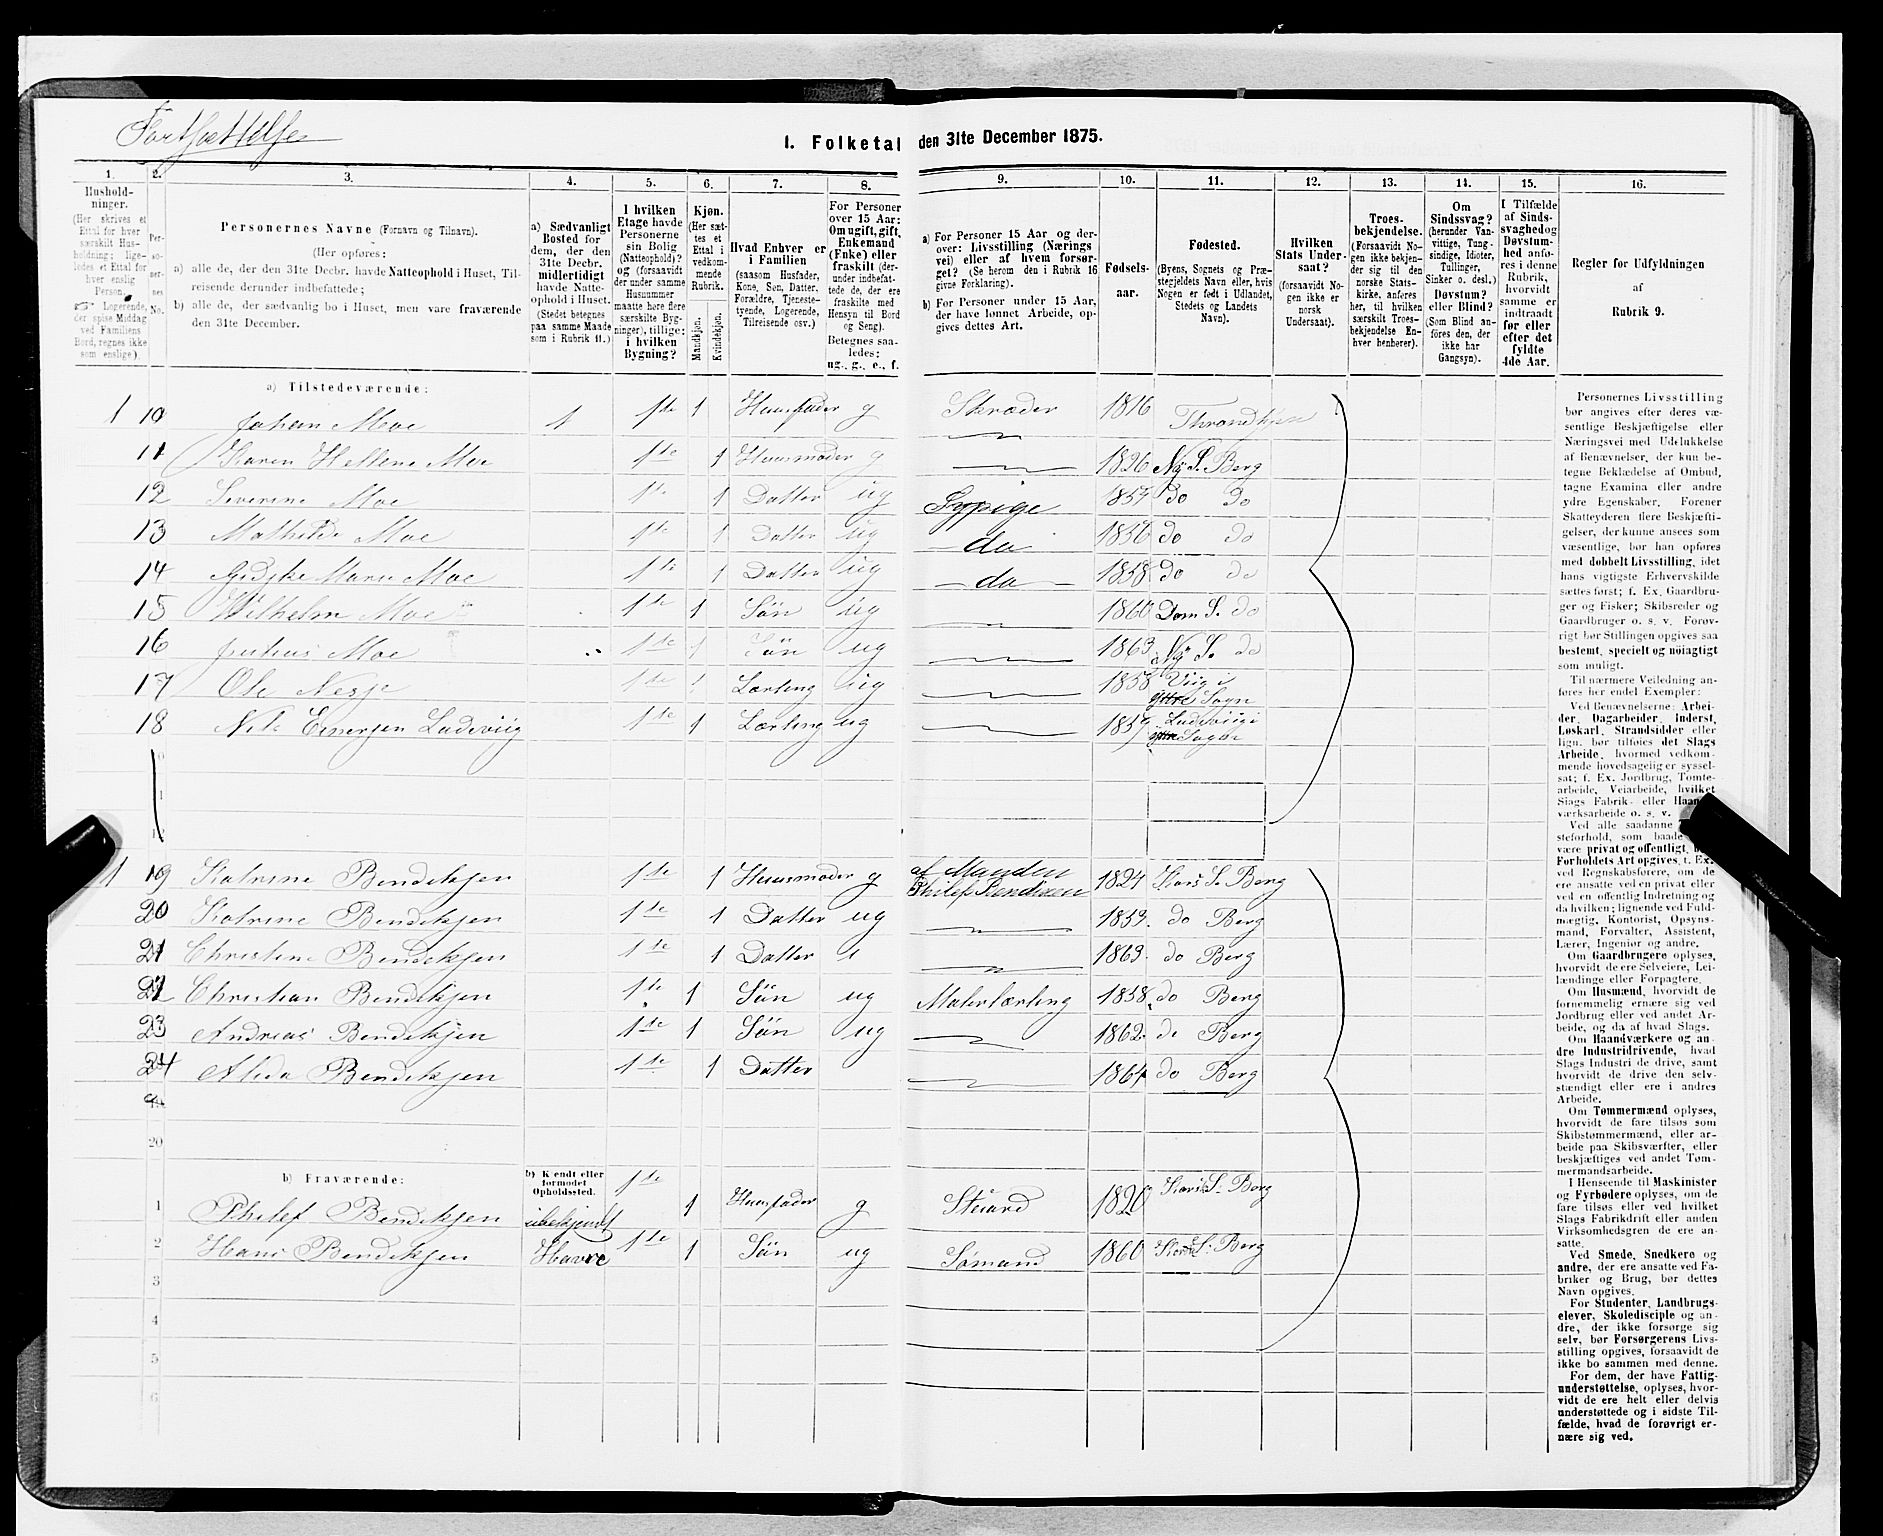 Fortsættelse
I. Folketal den 31te December 1875.
1. 2. 3. 4. 5. 6. 7. 8. 9. 10. 11. 12. 13. 14. 15. 16.
Hushold-
ninger.
(Her skrives et
Ettal for hver
særskilt Hus-
holdning; lige-
ledes et Ettal for
hver enslig
Person.
☞ Logerende,
der spise Middag
ved Familiens
Bord, regnes ikke
som enslige).
Per-
so-
ner-
nes
No.
Personernes Navne (Fornavn og Tilnavn).
(Her opføres:
a) alle de, der den 31te Decbr. havde Natteophold i Huset, Til-
reisende derunder indbefattede;
b) alle de, der sædvanlig bo i Huset, men vare fraværende
den 31te December.
a) Sædvanligt
Bosted for
dem, der den
31te Decbr.
midlertidigt
havde Natte-
ophold i Huset.
(Stedet betegnes
paa samme Maade
som i Rubrik 11.)
I hvilken
Etage havde
Personerne
sin Bolig
(Natteophold)?
og (forsaavidt
der under samme
Husnummer
maatte høre flere
særskilte Byg-
ninger), tillige:
i hvilken
Bygning?
Kjøn.
(Her sæt-
tes et
Ettal i
vedkom-
mende
Rubrik.
Mandkjøn.
Kvindekjøn.
Hvad Enhver er
i Familien
(saasom Husfader,
Kone, Søn, Datter,
Forældre, Tjeneste-
tyende, Logerende,
Tilreisende osv.)
For Personer
over 15 Aar:
Om ugift, gift,
Enkemand
(Enke) eller
fraskilt (der-
under indbefat-
tede de, der ere
fraskilte med
Hensyn til Bord
og Seng).
Betegnes saa-
ledes:
ug., g., e., f.
a) For Personer 15 Aar og der-
over: Livsstilling (Nærings
vei) eller af hvem forsør-
get? (Se herom den i Rubrik 16
givne Forklaring).
b) For Personer under 15 Aar,
der have lønnet Arbeide, op-
gives dettes Art.
Fødsels-
aar.
Fødested.
(Byens, Sognets og Præ-
stegjeldets Navn eller, hvis
Nogen er født i Udlandet,
Stedets og Landets
Navn).
Hvilken
Stats Under-
saat?
(forsaavidt No-
gen ikke er
norsk
Undersaat).
Troes-
bekjendelse.
(Forsaavidt No-
gen ikke bekjen-
der sig til den
norske Stats-
kirke, anføres
her, til hvilken
særskilt Troes-
bekjendelse En-
hver henhører).
Om
Sindssvag?
(herunder Van-
vittige, Tung-
sindige, Idioter,
Tullinger,
Sinker o. desl.)
Døvstum?
eller Blind?
(Som Blind an-
føres den, der
ikke har
Gangsyn).
I Tilfælde
af Sinds-
svaghed og
Døvstum-
hed anfø-
res i denne
Rubrik,
hvorvidt
samme er
indtraadt
før eller
efter det
fyldte
4de Aar.
Regler for Udfyldningen
af
Rubrik 9.
a) Tilstedeværende:
1 10 Johan Moe 1 1te 1 Huusfader g Skræder 1816 Throndhjem
11 Karen Hellene Moe 1te 1 Huusmoder g 1826 Ny S. Berg
12 Severine Moe 1te 1 Datter ug Sypige 1854 do do
13 Mathilde Moe 1te 1 Datter ug do 1856 do do
14 Gidske Marie Moe 1te 1 Datter ug do 1858 do do
15 Wilhelm Moe 1te 1 Sön ug 1860 Dom S. do
16 Julius Moe 1te 1 Sön ug 1863 Ny S. do
17 Ole Nesje 1te 1 Lærling ug 1858 Viig i
Yttre Sogn
18 Nils Ejnersen Ladeviig 1te 1 Lærling ug 1859 Ladeviig i
Yttre Sogn
1 19 Katrine Bendiksen 1te 1 Huusmoder g af Manden
Philef Bendixen 1824 Kors S. Berg
20 Katrine Bendiksen 1te 1 Datter ug 1853. do Berg
21 Christine Bendiksen 1te 1 Datter 1 1863. do Berg
22 Christian Bendiksen 1te 1 Sön ug Malerlærling 1858 do Berg
23 Andreas Bendiksen 1te 1 Sön ug 1862. do Berg
24 Alida Bendiksen 1te 1 Datter 1864 do Berg
20
b) Fraværende:
b) Kjendt eller
formodet
Opholdssted.
1 Philef Bendiksen ubekjendt 1te 1 Huusfader g Stuard 1820 Kors S. Berg
2 Hans Bendiksen Havre 1te 1 Sön ug Sömand 1860 Kors S. Berg
3
4
5
6
Personernes Livsstilling
bør angives efter deres væ-
sentlige Beskjæftigelse eller
Næringsvei med Udelukkelse
af Benævnelser, der kun be-
tegne Beklædelse af Ombud,
tagne Examina eller andre
ydre Egenskaber. Forener
Skatteyderen flere Beskjæfti-
gelser, der kunne ansees som
væsentlige, bør han opføres
med dobbelt Livsstilling, idet
hans vigtigste Erhvervskilde
sættes først; f. Ex. Gaardbru-
ger og Fisker; Skibsreder og
Gaardbruger o. s. v. Forøv-
rigt bør Stillingen opgives saa
bestemt, specielt og nöiagtigt
som muligt.
Til nærmere Veiledning an-
føres her endel Exempler:
Ved Benævnelserne: Arbei-
der, Dagarbeider, Inderst,
Løskarl, Strandsidder eller
lign. bør tilføies det Slags
Arbeide, hvormed vedkom-
mende hovedsagelig er syssel-
sat; f. Ex. Jordbrug, Tomte-
arbeide, Veiarbeide, hvilket
Slags Fabrik- eller Haand-
værksarbeide o. s. v.
Ved alle saadanne
steforhold, som baade
være privat og offentligt,
Forholdets Art opgives, f. Ex.
ved Regnskabsførere, om de
ere ansatte ved en privat eller
ved en offentlig Indretning og
da hvilken; lignende ved Fuld-
mægtig, Kontorist, Opsyns-
mand, Forvalter, Assistent,
Lærer, Ingeniør og andre.
Om Gaardbrugere oplyses,
hvorvidt de ere Selveiere, Lei-
lændinge eller Forpagtere.
Om Husmænd, hvorvidt de
fornemmelig ernære sig ved
Jordbrug eller ved andet Ar-
beide, og da af hvad Slags.
Om Haandværkere og an-
dre Industridrivende, hvad
Slags Industri de drive, samt
hvorvidt de drive den selv-
stændigt eller ere i andres
Arbeide.
Om Tømmermænd oplyses,
hvorvidt de fare tilsøs som
Skibstømmermænd, eller ar-
beide paa Skibsværfter, eller
beskjæftiges ved andet Tøm-
mermandsarbeide.
I Henseende til Maskinister
og Fyrbødere oplyses, om de
fare tilsøs eller ved hvilket
Slags Fabrikdrift eller anden
Virksomhedsgren de ere an-
satte.
Ved Smede, Snedkere og
andre, der ere ansatte ved Fa-
briker og Brug, bør dettes
Navn opgives.
For Studenter, Landbrugs-
elever, Skoledisciple og an-
dre, der ikke forsørge sig
selv, bør Forsørgerens Livs-
stilling opgives, forsaavidt de
ikke bo sammen med denne.
For dem, der have Fattig-
understøttelse, oplyses, hvor-
vidt de ere helt eller delvis
understøttede og i sidste Til-
fælde, hvad de forøvrigt er-
nære sig ved.